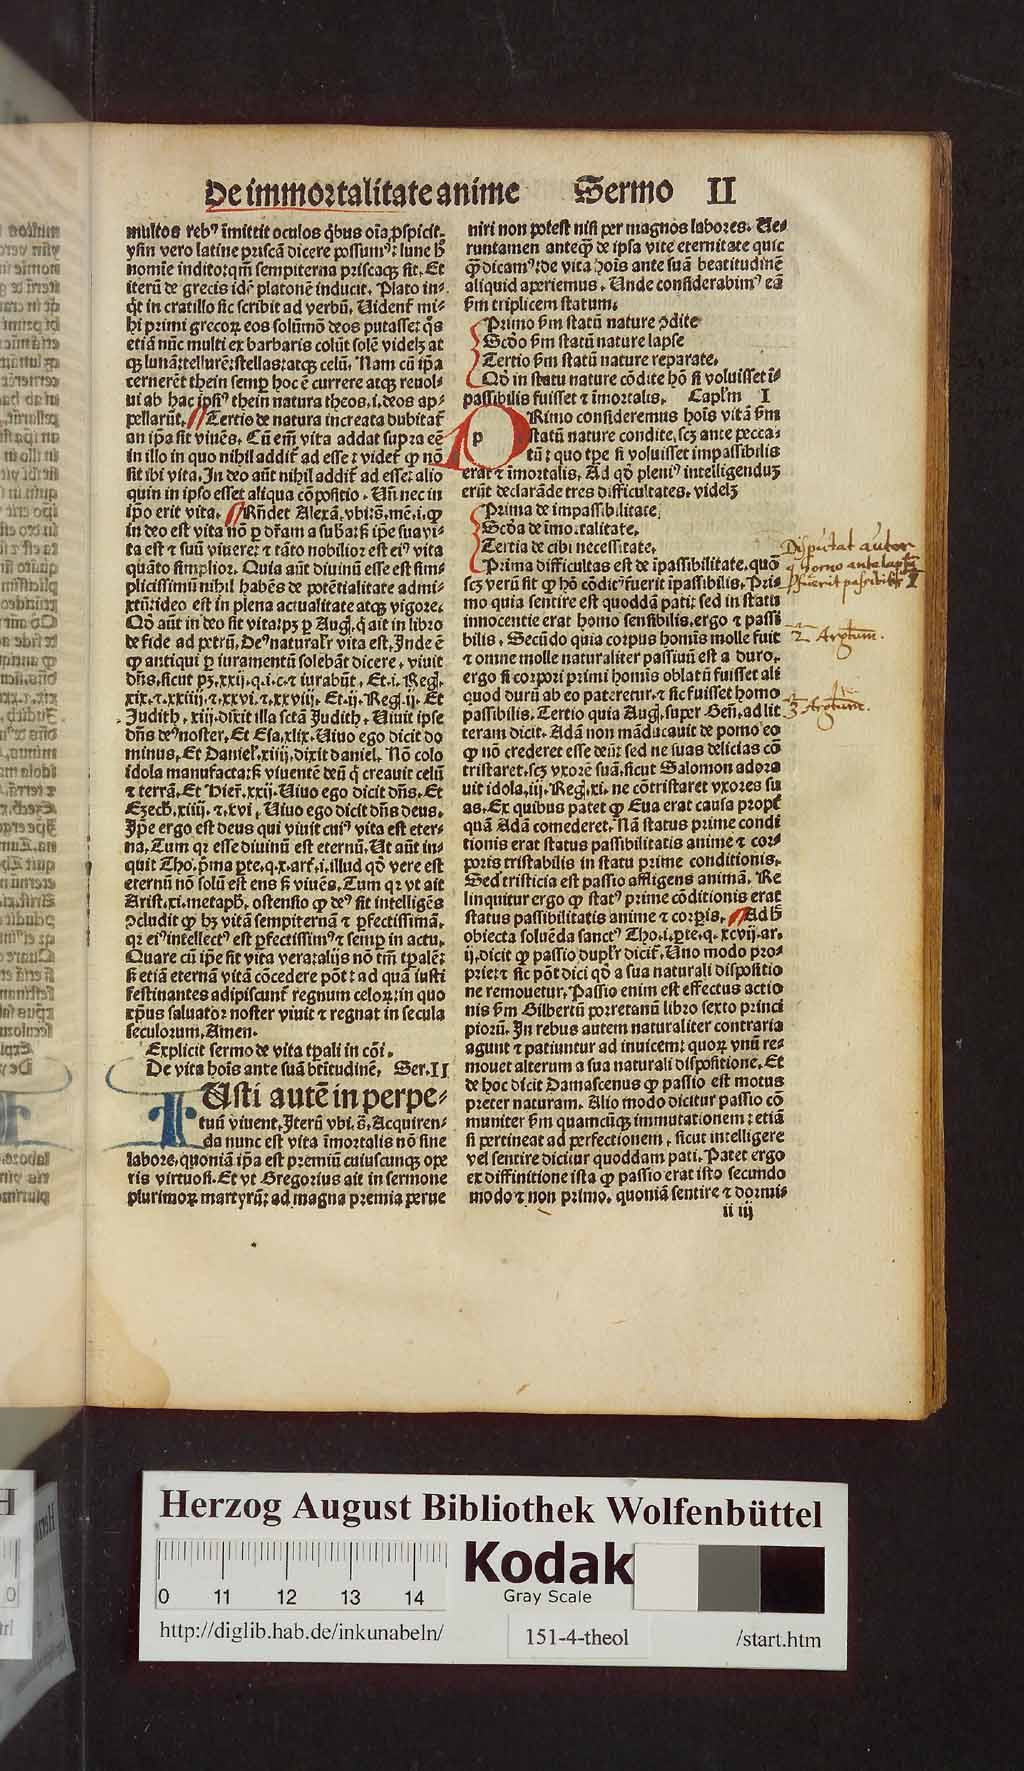 De immortalitate anime Sermo II
multos rebꝰ īmittit oculos q̇bus oīa ꝑspicit.
ysin vero latine priscā dicere possumꝰ: lune hͦ
nomīe indito: qm̄ sempiterna priscaqꝫ sit. Et
iterū de grecis idē platonē inducit. Plato in⸗
q̇t in cratillo sic scribit ad verbū. Uident̃ mi⸗
hi primi grecoꝝ eos solūmō deos putasse: q̇s
etiā nūc multi ex barbaris colūt solē videlꝫ at
qꝫ lunā: tellurē: stellas: atqꝫ celū. Nam cū ip̄a
cernerēt thein semꝑ hoc ē currere atqꝫ reuol⸗
ui ab hac ipsiꝰ thein natura theos .i. deos ap⸗
pellarūt. Tertio de natura increata dubitat̃
an ip̄a sit viuēs. Cū em̄ vita addat supra eē
in illo in quo nihil addit̃ ad esse: videt̃ ꝙ nō
sit ibi vita. In deo aūt nihil addit̃ ad esse: alio
quin in ipso esset aliqua cōpositio. Un̄ nec in
ip̄o erit vita. Rn̄det Alexā. vbi. s̄. mē. i. ꝙ
in deo est vita nō ꝑ dr̄am a suba: sꝫ ip̄e suaui⸗
ta est ⁊ suū viuere: ⁊ tāto nobilior est eiꝰ vita
quāto simplior. Quia aūt diuinū esse est sim⸗
plicissimū nihil habēs de potētialitate admi⸗
xtū: ideo est in plena actualitate atqꝫ vigore.
Qō aūt in deo sit vita: pꝫ ꝑ Aug. q̇ ait in libro
de fide ad petrū. Deꝰ naturalr̄ vita est. Inde ē
ꝙ antiqui ꝑ iuramentū solebāt dicere. viuit
dn̄s. sicut pꝫ. xxij. q. i. c. ⁊ iurabūt. Et .i. Reg.
xix. ⁊ .xxiiij. ⁊ .xxvi. ⁊ .xxviij. Et .ij. Reg. ij. Et
Judith. xij. dixit illa sctā Judith. Uiuit ipse
dn̄s deꝰ noster. Et Esa. xlix. Uiuo ego dicit do
minus. Et Daniel. xiiij. dixit daniel. Nō colo
idola manufacta: sꝫ viuentē deū q̇ creauit celū
⁊ terrā. Et Hier. xxij. Uiuo ego dicit dn̄s. Et
Ezech. xiiij. ⁊ .xvi. Uiuo ego dicit dn̄s deus.
Ip̄e ergo est deus qui viuit cuiꝰ vita est eter⸗
na. Tum qr esse diuinū est eternū. Ut aūt in⸗
quit Tho. p̄ma ꝑte. q. x. art̃. i. illud qd̄ vere est
eternū nō solū est ens sꝫ viuēs. Tum qr vt ait
Arist. xi. metaph. ostensio ꝙ deꝰ sit intelligēs
ↄcludit ꝙ hꝫ vitā sempiternā ⁊ ꝑfectissimā.
qr eiꝰ intellectꝰ est ꝑfectissimꝰ ⁊ semꝑ in actu.
Quare cū ip̄e sit vita vera: alijs nō tm̄ tp̄alē:
sꝫ etiā eternā vitā cōcedere pōt: ad quā iusti
festinantes adipiscunt̃ regnum celoꝝ: in quo
xp̄us saluator noster viuit ⁊ regnat in secula
seculorum. Amen.
Explicit sermo de vita tp̄ali in cōi.
De vita hoīs ante suā btītudinē. Ser. II
I Usti autē in perpe⸗
tuū viuent. Iterū vbi. s̄. Acquiren⸗
da nunc est vita īmortalis nō sine
labore. quoniā ip̄a est premiū cuiuscunqꝫ ope
ris virtuosi. Et vt Gregorius ait in sermone
plurimoꝝ martyrū: ad magna premia perue
niri non potest nisi per magnos labores. Ue⸗
runtamen anteqꝫ de ipsa vite eternitate quic
qꝫ dicamꝰ: de vita hoīs ante suā beatitudinē
aliquid aperiemus. Unde considerabimꝰ eā
ẜm triplicem statum.
Primo ẜm statū nature ↄdite
Scd̄o ẜm statū nature lapse
Tertio ẜm statū nature reparate.
Qd̄ in statu nature cōdite hō si voluisset ī⸗
passibilis fuisset ⁊ īmortalis. Caplm̄ I
p Rimo consideremus hoīs vitā ẜm
statū nature condite. scꝫ ante pecca⸗
tū: quo tp̄e si voluisset impassibilis
erat ⁊ īmortalis. Ad qd̄ pleniꝰ intelligenduꝫ
erūt declarāde tres difficultates. videlꝫ
Prima de impassibilitate.
Scd̄a de īmortalitate.
Tertia de cibi necessitate.
Prima difficultas est de īpassibilitate. quō
scꝫ verū sit ꝙ hō cōditꝰ fuerit īpassibilis. Pri⸗
mo quia sentire est quoddā pati: sed in statu
innocentie erat homo sensibilis. ergo ⁊ passi
bilis. Secūdo quia corpus homīs molle fuit
⁊ omne molle naturaliter passiuū est a duro.
ergo si corpori primi homīs oblatū fuisset ali
quod durū ab eo pateretur. ⁊ sic fuisset homo
passibilis. Tertio quia Aug. super Gen̄. ad lit
teram dicit. Adā non māducauit de pomo eo
ꝙ nō crederet esse deū: sed ne suas delicias cō
tristaret. scꝫ vxorē suā. sicut Salomon adora
uit idola. iij. Reg. xi. ne cōtristaret vxores su
as. Ex quibus patet ꝙ Eua erat causa propt̃
quā Adā comederet. Nā status prime condi
tionis erat status passibilitatis anime ⁊ cor⸗
poris tristabilis in statu prime conditionis.
Sed tristicia est passio affligens animā. Re
linquitur ergo ꝙ statꝰ prime cōditionis erat
status passibilitatis anime ⁊ corpis. Ad hͦ
obiecta soluēda sanctꝰ Tho. i. ꝑte. q. xcvij. ar.
ij. dicit ꝙ passio duplr̄ dicit̃. Uno modo pro⸗
prie: ⁊ sic pōt dici qd̄ a sua naturali dispositio
ne remouetur. Passio enim est effectus actio
nis ẜm Gilbertū porretanū libro sexto princi
piorū. In rebus autem naturaliter contraria
agunt ⁊ patiuntur ad inuicem: quoꝝ vnū re⸗
mouet alterum a sua naturali dispositione. Et
de hoc dicit Damascenus ꝙ passio est motus
preter naturam. Alio modo dicitur passio cō
muniter ẜm quamcūqꝫ immutationem: etiā
si pertineat ad perfectionem. sicut intelligere
vel sentire dicitur quoddam pati. Patet ergo
ex diffinitione ista ꝙ passio erat isto secundo
modo ⁊ non primo. quoniā sentire ⁊ dormi⸗
ii iij
Disputat autor
homo ante lapsū
fuerit passibilis 1
2 Argtum.
3 Argtum.
Herzog August Bibliothek Wolfenbüttel
Kodak
Gray Scale
0 11 12 13 14
http://diglib.hab.de/inkunabeln/
151-4-theol
/start.htm